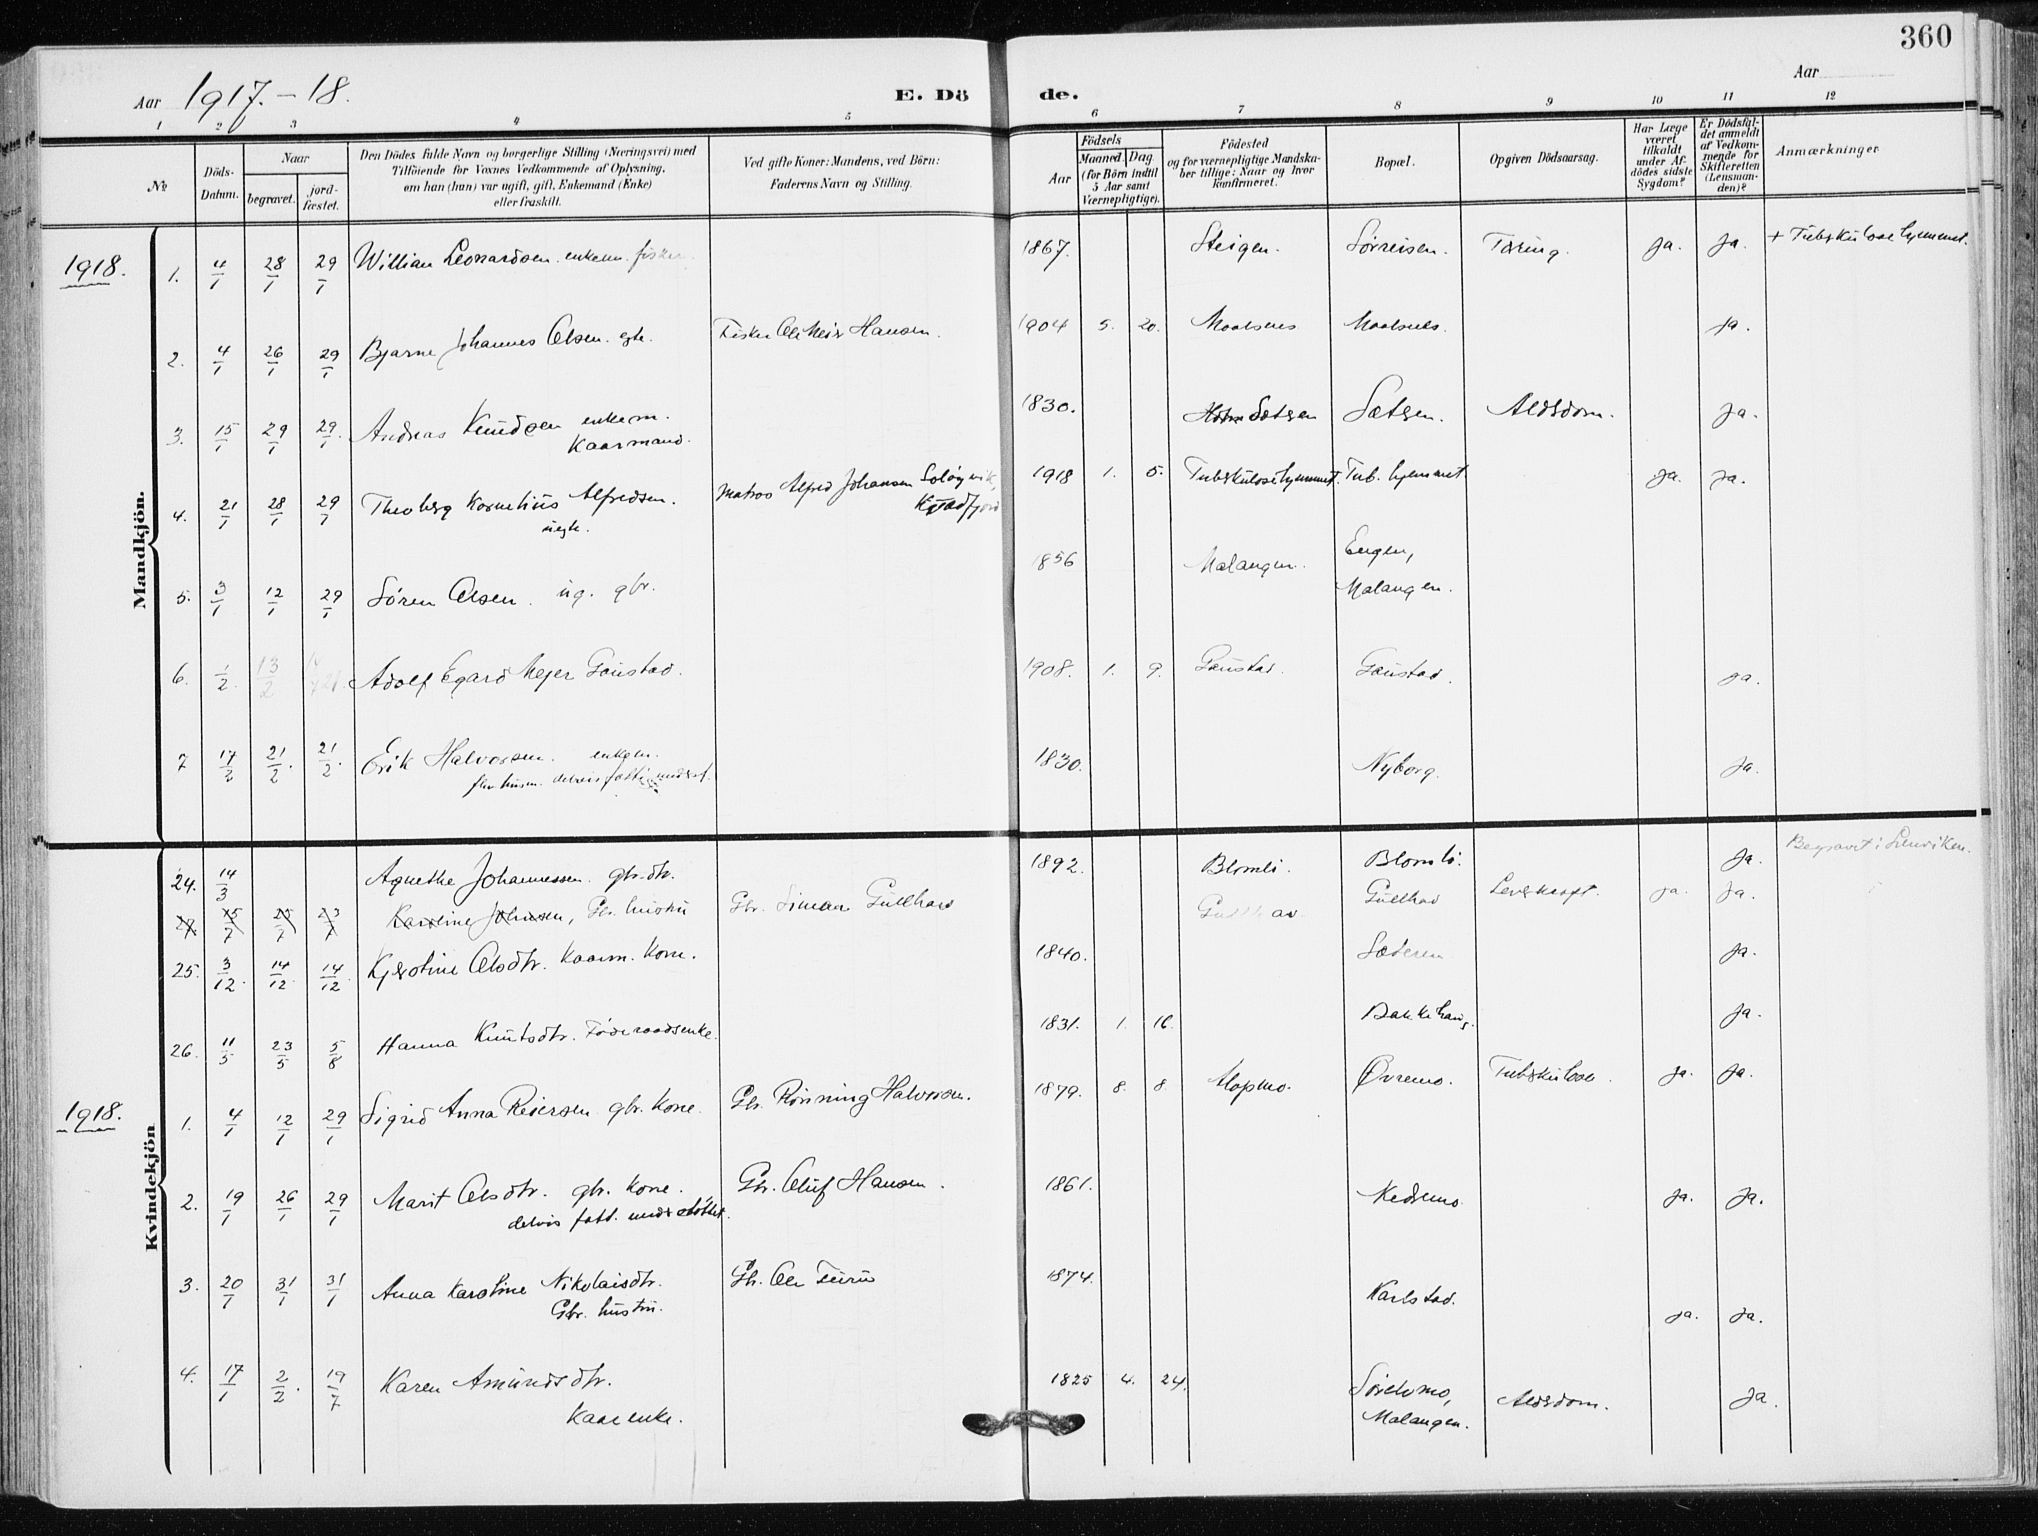 360
Aar 1917.-18.
E. Dö de.
Aar
1 2 3 4 5 6 7 8 9 10 11 12
№
Döds-
Datum.
Naar
begravet.
jord-
fæstet.
Den Dödes fulde Navn og borgerlige Stilling (Næringsvei) med
Tilföiende for Voxnes Vedkommende af Oplysning,
om han (hun) var ugift, gift, Enkemand (Enke)
eller fraskilt.
Ved gifte Koner: Mandens, ved Börn:
Faderens Navn og Stilling.
Födsels
Aar
Maaned Dag
(for Börn indtil
5 Aar samt
Værnepligtige).
Födested
og for værnepligtige Mandska-
ber tillige: Naar og hvor
konfirmeret.
Bopæl.
Opgiven Dödsaarsag.
Har Læge
været
tilkaldt
under Af-
dödes sidste
Sygdom?
Er Dödsfal-
det anmeldt
af Vedkom-
mende for
Skifteretten
(Lensman-
den)?
Anmærkninger
Mandkjön.
1918.
1. 4/1 28/1 29/1 Willian Leonardsen. enkem. fisker 1867. Steigen. Sörreisen. Tæring. ja. ja. + Tuberkulosehjemmet.
2. 4/1 26/1 29/1 Bjarne Johannes Olsen. egte. Fisker Ole Meier Hansen. 1904 5. 20. Maalsnes Maalsnes. ja.
3. 15/1 29/1 29/1. Andreas Knudsen enkem. 1830. Sætsen Sætsen. Aldsdom. ja.
Kaarmand.
4. 21/1 28/1 29/1 Theoberg Kornelius Alfredsen. Matros Alfred Johansen Solöyvik, 1918 1. 5. Tuberkulosehjemmet. Tub. hjemmet ja. ja.
uegte.
5. 3/1 12/1 29/1 Sören Olsen. ug. gbr. 1856 Malangen. Engen,
Malangen.
6. 1/2. 13/2 Adolf Egard Mejer Gaustad. 1908. 1. 9. Gaustad. Gaustad. ja.
7 17/2 21/2. 21/2. Erik Halvorsen. enkem. 1830. Nyborg. ja.
Kvindekjön
24. 14/3 Agnethe Johannessen. gbr. dtr. 1892. Blomli. Blomli. ja. Begravet i Lenviken.
Karoline Johnsen, Gbr. hustru Gbr. Simon Gullhav Gullhav Gullhav ja. ja.
25. 3/12. 14/12. 14/12. Olsdtr. kaarm. kone. 1840. Sæteren ja.
26. 11/5 23/5 5/8 Hanna Knutsdtr. Föderaadsenke. 1831. 1. 16. Bakkehaug. ja.
1918.
1. 4/1 12/1 29/1 Sigrid Anna Reiersen gbr. kone. Gbr. Rönning Halvorsen. 1879. 8. 8. Mopmo. Övremo. Tuberkulose ja. ja.
2. 19/1 26/1 29/1 Marit Olsdtr. gbr. kone. Gbr. Oluf Hansen. 1861. Kedemo ja. ja.
delvis fatt. understöttet.
3. 20/1 31/1 31/1 Anna Karoline Nikolaisdtr. Gbr. Ole 1874. Karlstad. ja. ja.
Gbr. hustru.
4. 17/1 2/2. 19/7 Karen Amundsdtr. 1825 4. 24. Malangen. Aldsdom. ja.
Kaarenke.